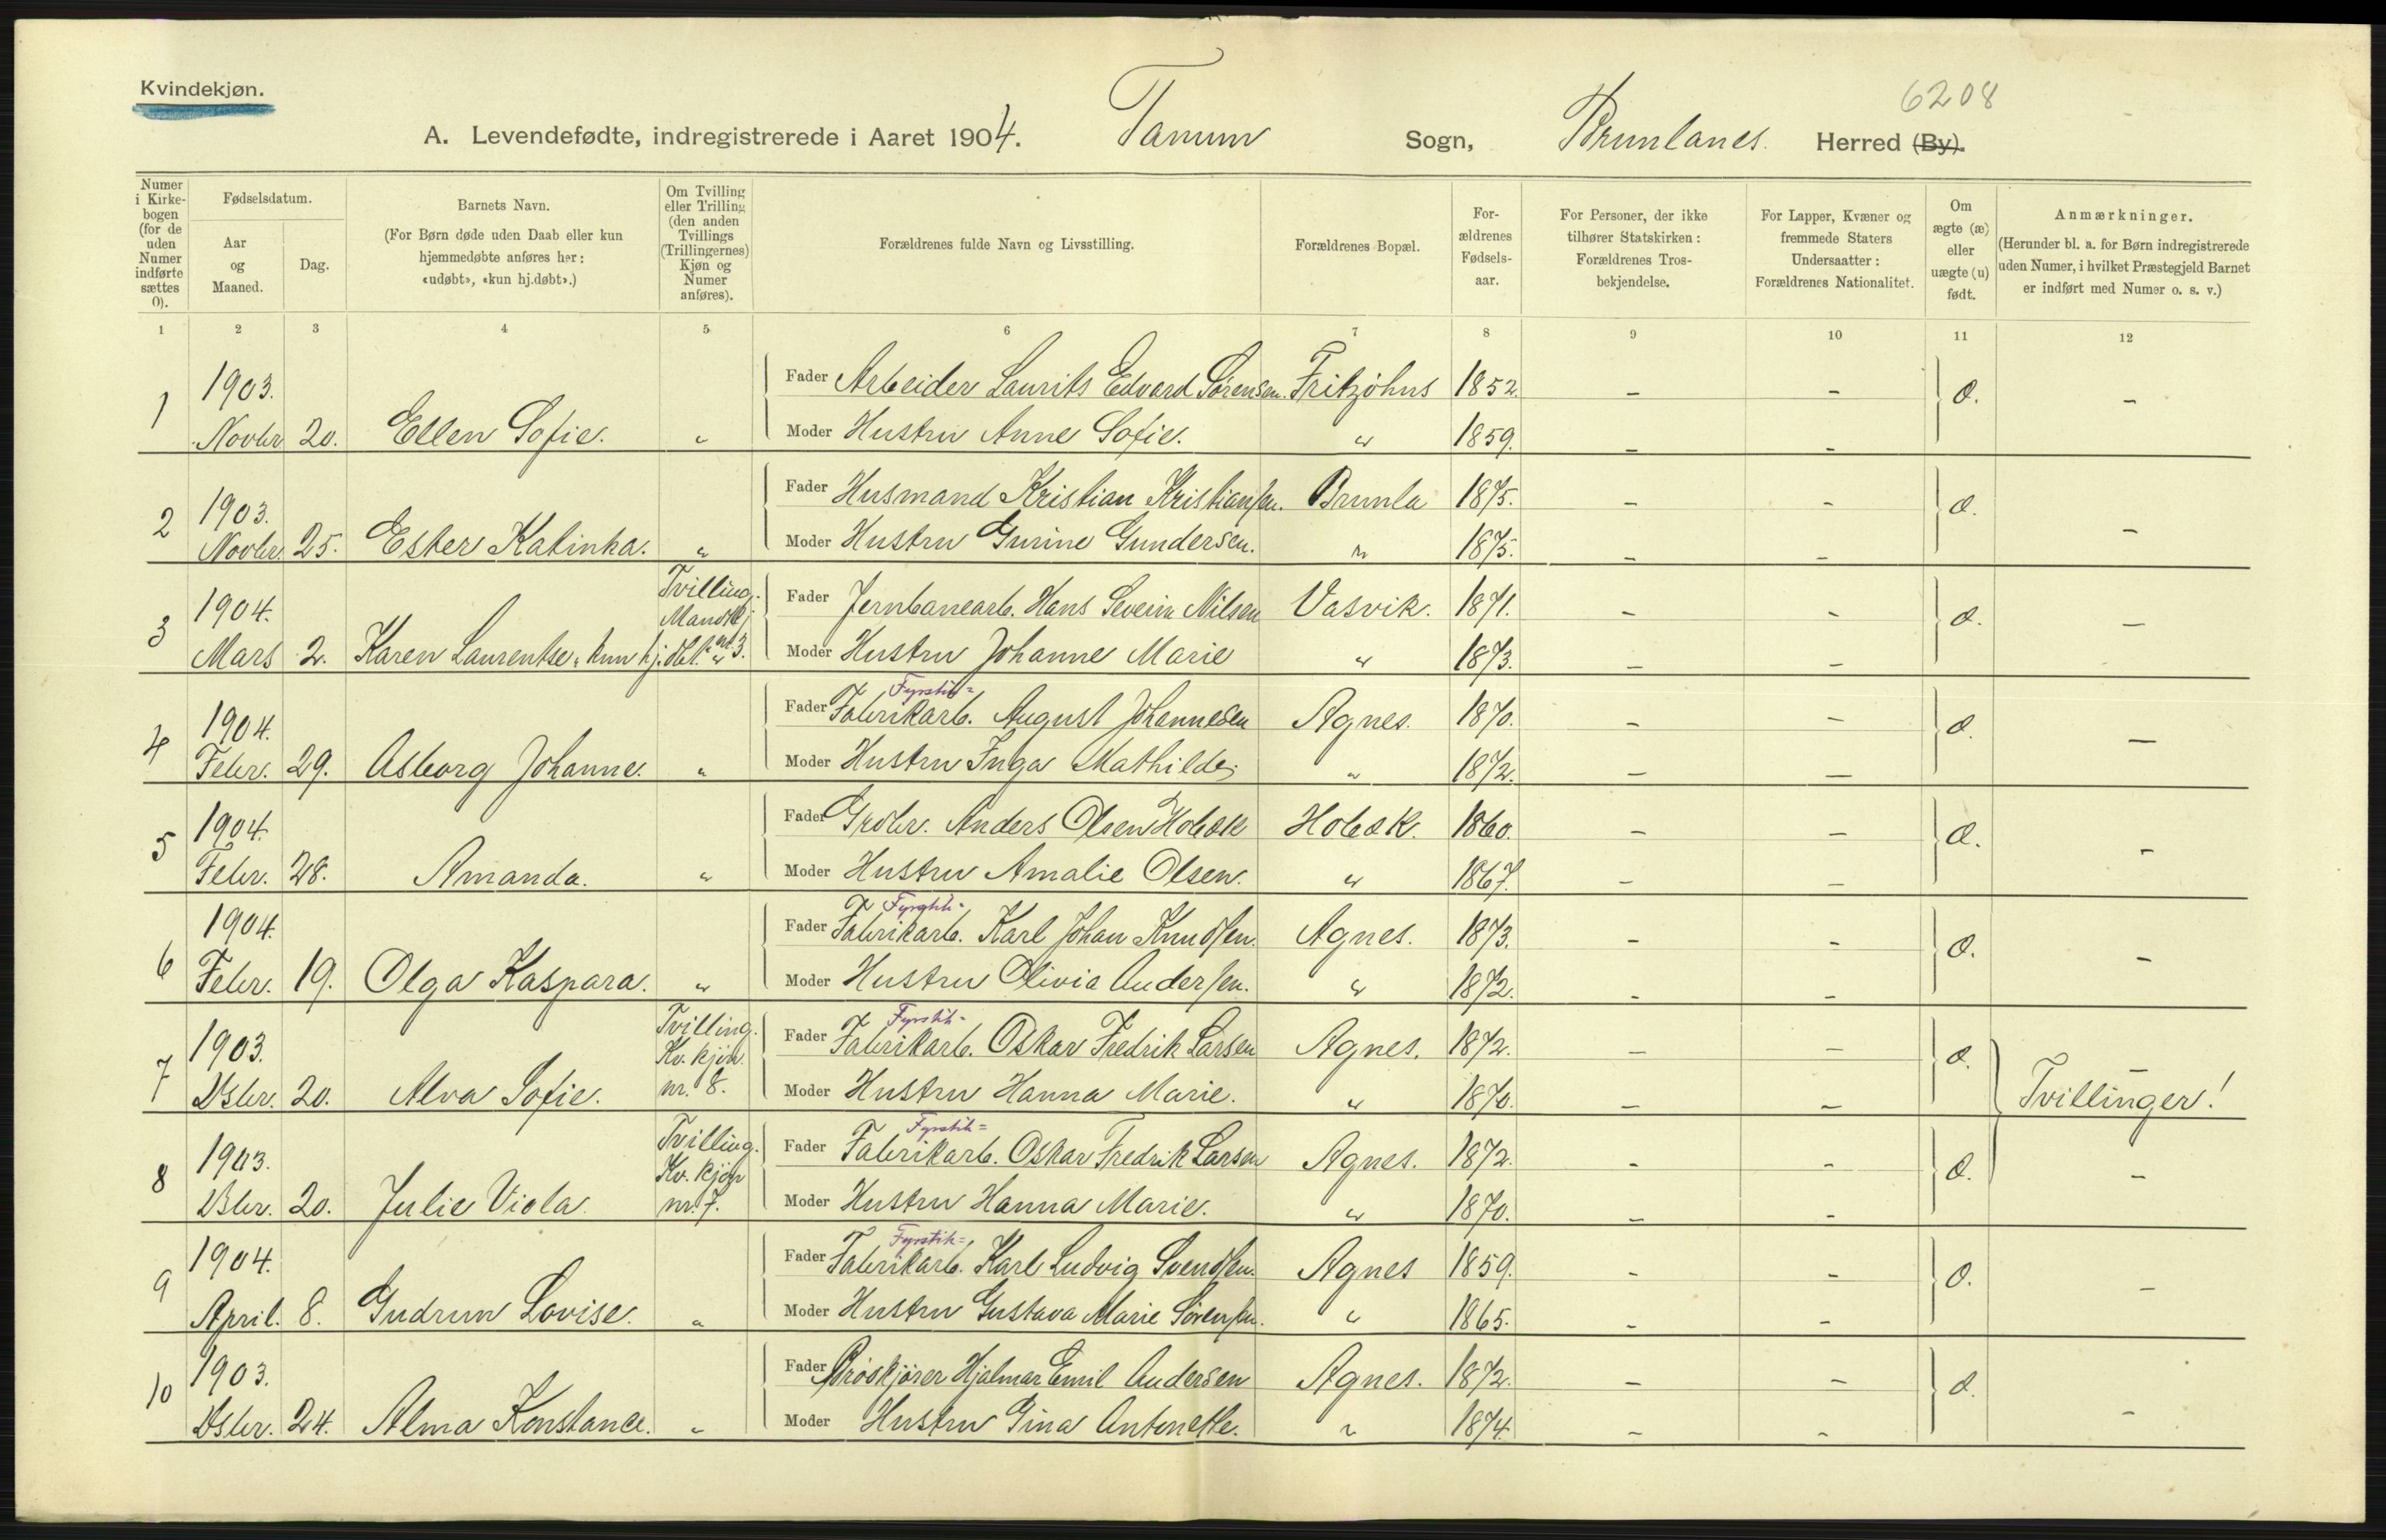 Kvindekjøn.
6208
A. Levendefødte, indregistrerede i Aaret 1904. Tanum Sogn, Brunlanes. Herred (By).
Numer i Kirkebogen (for de uden Numer indførte sættes 0).
Fødselsdatum.
Aar og Maaned.
Dag.
Barnets Navn.
(For Børn døde uden Daab eller kun hjemmedøbte anføres her: «udøbt», «kun hj.døbt».)
Om Tvilling eller Trilling (den anden Tvillings (Trillingernes) Kjøn og Numer anføres).
Forældrenes fulde Navn og Livsstilling.
Forældrenes Bopæl.
Forældrenes Fødselsaar.
For Personer, der ikke tilhører Statskirken: Forældrenes Trosbekjendelse.
For Lapper, Kvæner og fremmede Staters Undersaatter: Forældrenes Nationalitet.
Om ægte (æ) eller uægte (u) født.
Anmærkninger.
(Herunder bl. a. for Børn indregistrerede uden Numer, i hvilket Præstegjeld Barnet er indført med Numer o. s. v.)
1 2 3 4 5 6 7 8 9 10 11 12
1 1903. Novbr 20. Ellen Sofie. "
Fader Arbeider Laurits Edvard Sørensen. Fritzøhus 1852. - - æ. -
Moder Hustru Anne Sofie. " 1859. - -
2 1903. Novbr. 25. Ester Katinka. "
Fader Husmand Kristian Kristiansen. Brunla 1875. - - æ. -
Moder Hustru Gurine Gundersen. " 1875. - -
3 1904. Mars 2. Karen Laurentse "kun hj. dbt." Tvilling. Mandkj nr. 3.
Fader Jernbanearb. Hans Severin Nilsen Vasvik. 1871. - - æ. -
Moder Hustru Johanne Marie " 1873. - -
4 1904. Febr. 29. Asborg Johanne. "
Fyrstik=
Fader Fabrikarb. August Johannesen Agnes. 1870. - - æ. -
Moder Hustru Inga Mathilde. " 1872. - -
5 1904. Febr. 28. Amanda. "
Fader Grdbr. Anders Olsen Holæk Holæk. 1860. - - æ. -
Moder Hustru Amalie Olsen. " 1867. - -
6 1904. Febr. 19. Olga Kaspara. "
Fyrstik-
Fader Fabrikarb. Karl Johan Knudsen. Agnes. 1873. - - æ. -
Moder Hustru Olivia Andersen. " 1872. - -
7 1903. Dsbr. 20. Alva Sofie. Tvilling. Kv. kjøn. nr. 8.
Fyrstik-
Fader Fabrikarb. Oskar Fredrik Larsen Agnes. 1872. - - æ. -
Moder Hustru Hanna Marie. " 1870. - - Tvillinger!
8 1903. Dsbr. 20. Julie Viola. Tvilling. Kv. kjøn nr. 7.
Fyrstik=
Fader Fabrikarb. Oskar Fredrik Larsen Agnes. 1872. - - æ. -
Moder Hustru Hanna Marie. " 1870. - -
9 1904. April. 8. Gudrun Lovise. "
Fyrstik=
Fader Fabrikarb. Karl Ludvig Svendsen. Agnes 1859. - - æ. -
Moder Hustru Gustava Marie Sørensen. " 1865. - -
10 1903. Dsbr. 24. Alma Konstance. "
Fader Hjalmar Emil Andersen Agnes. 1872. - - æ. -
Moder Hustru Gina Antonette. " 1874. - -